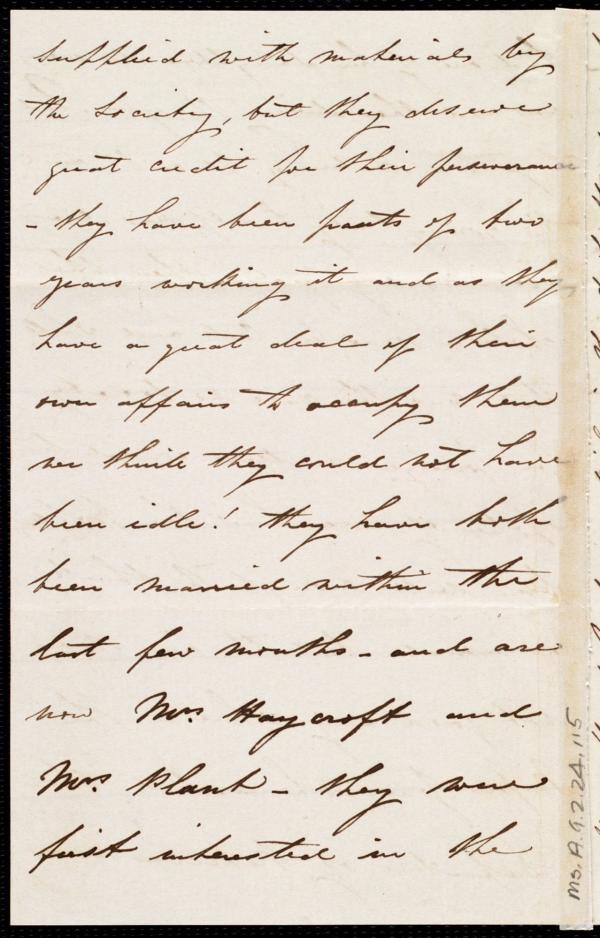 supplied with materials by
the Society, but they deserve
great credit for their perseverance
- they have been parts of two
years working it and as they
have a great deal of their
own affairs to occupy them
we think they could not have
been idle! they have both
been married within the
last few months - and are
now Mrs. Haycroft and
Mrs. Plant - they were
first interested in the
Ms. A.9.2.24.115